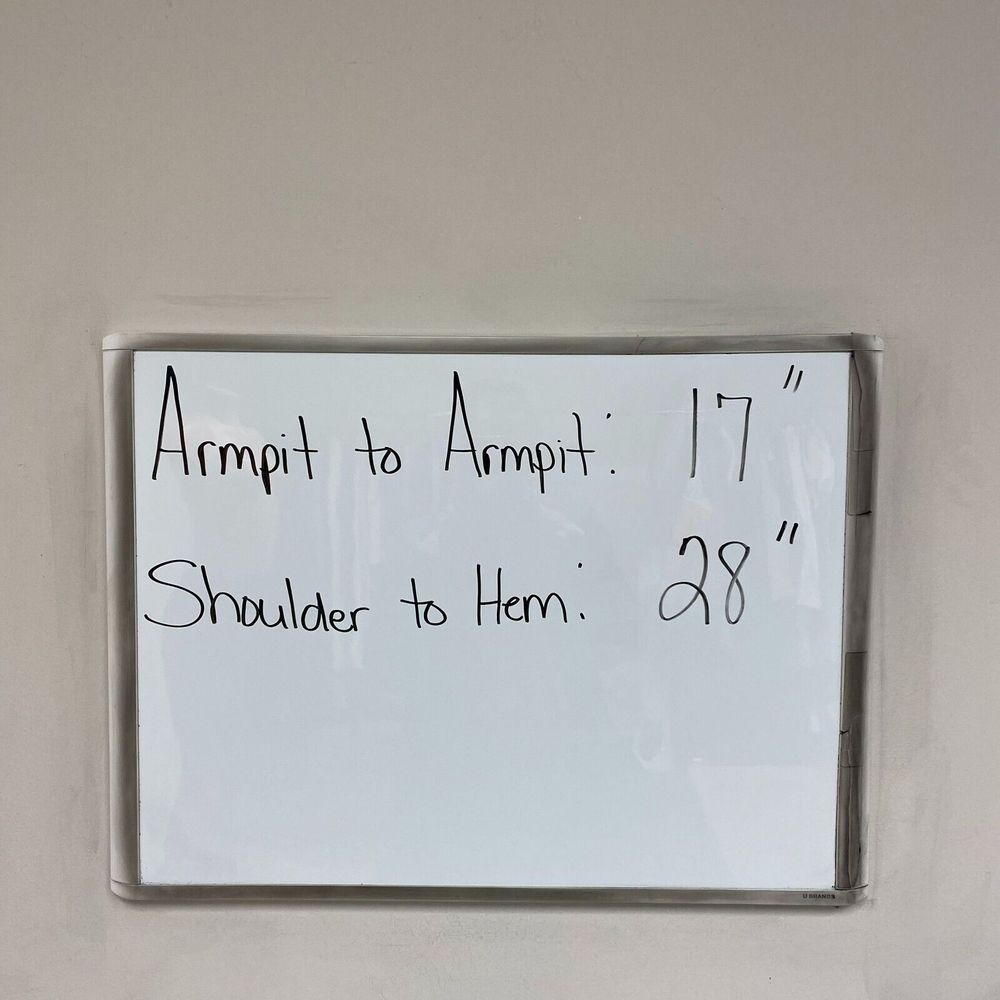 Armpit to Armpit: 17"
Shoulder to Hem: 28"
U BRANDS